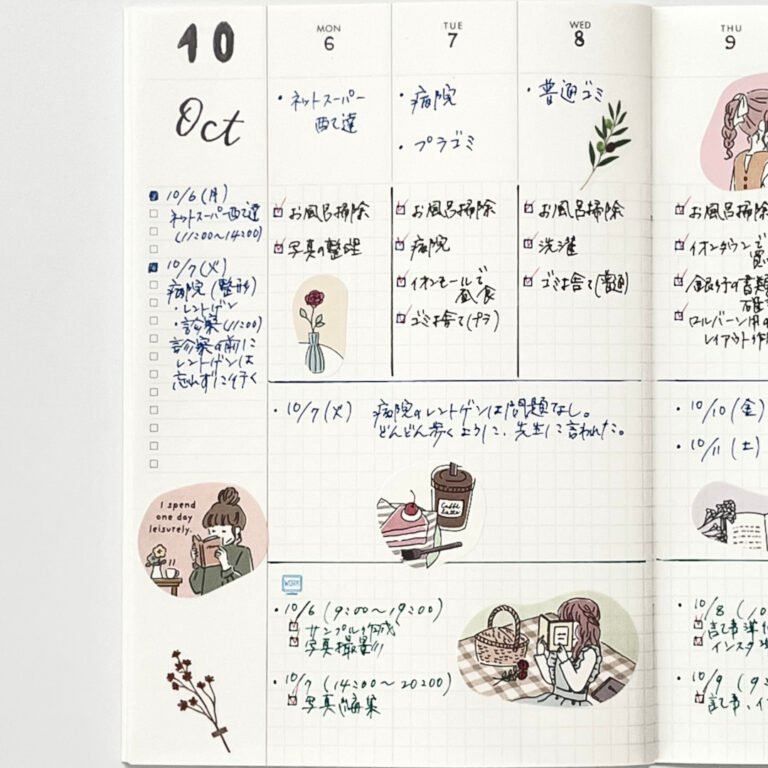 10
Oct
MON
6
TUE
7
WED
8
THU
9
・ネットスーパー
配て達
・病院
・プラゴミ
・普通ゴミ
10/6(月)
ネットスーパー配て達
(11:00〜14:00)
10/7(火)
病院(整形)
・レントゲン
・診察(11:00)
診察の前に
レントゲンは
忘れずに行く
お風呂掃除
写真の整理
お風呂掃除
病院
イオンモールで
昼食
ゴミ捨て(プラ)
お風呂掃除
洗濯
ゴミ捨て(普通)
お風呂掃除
イオンタウンで
銀行の書類
ロルバーン用の
レイアウト作
・10/7(火) 病院のレントゲンは問題なし。
どんどん歩くように、先生に言われた。
・10/10(金)
・10/11(土)
I spend
one day
leisurely.
Caffè
Latte
WORK
・10/6(9:00〜19:00)
サンプル作成
写真撮影
・10/7(14:00〜20:00)
写真編集
・10/8(10
記事準備
インスタ
・10/9(9:
記事、イン